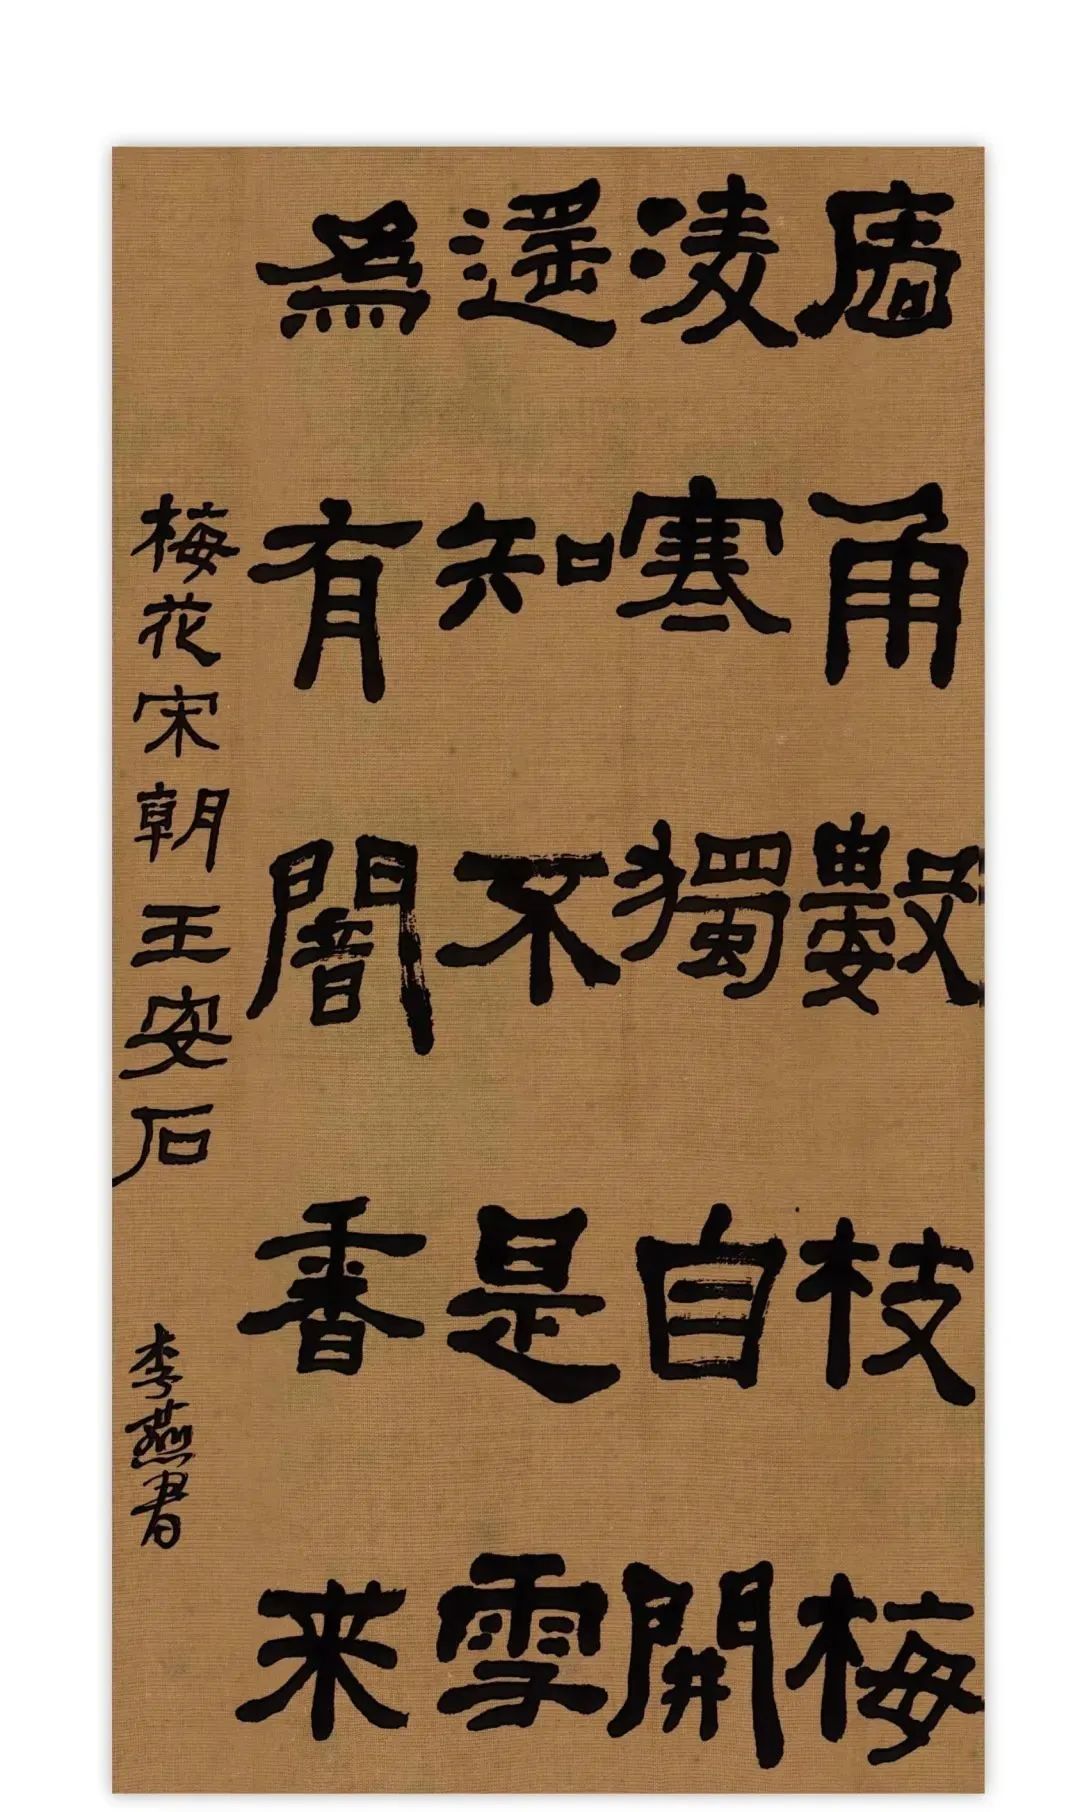 牆角數枝梅
凌寒獨自開
遥知不是雪
為有闇香来
梅花宋朝王安石
李燕書